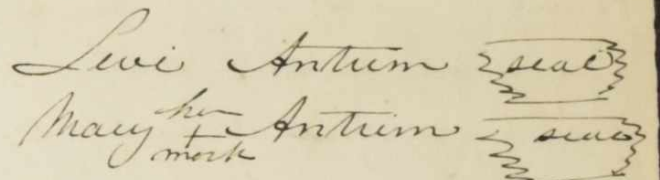 Levi Antrim seal
Mary her + mark Antrim seal